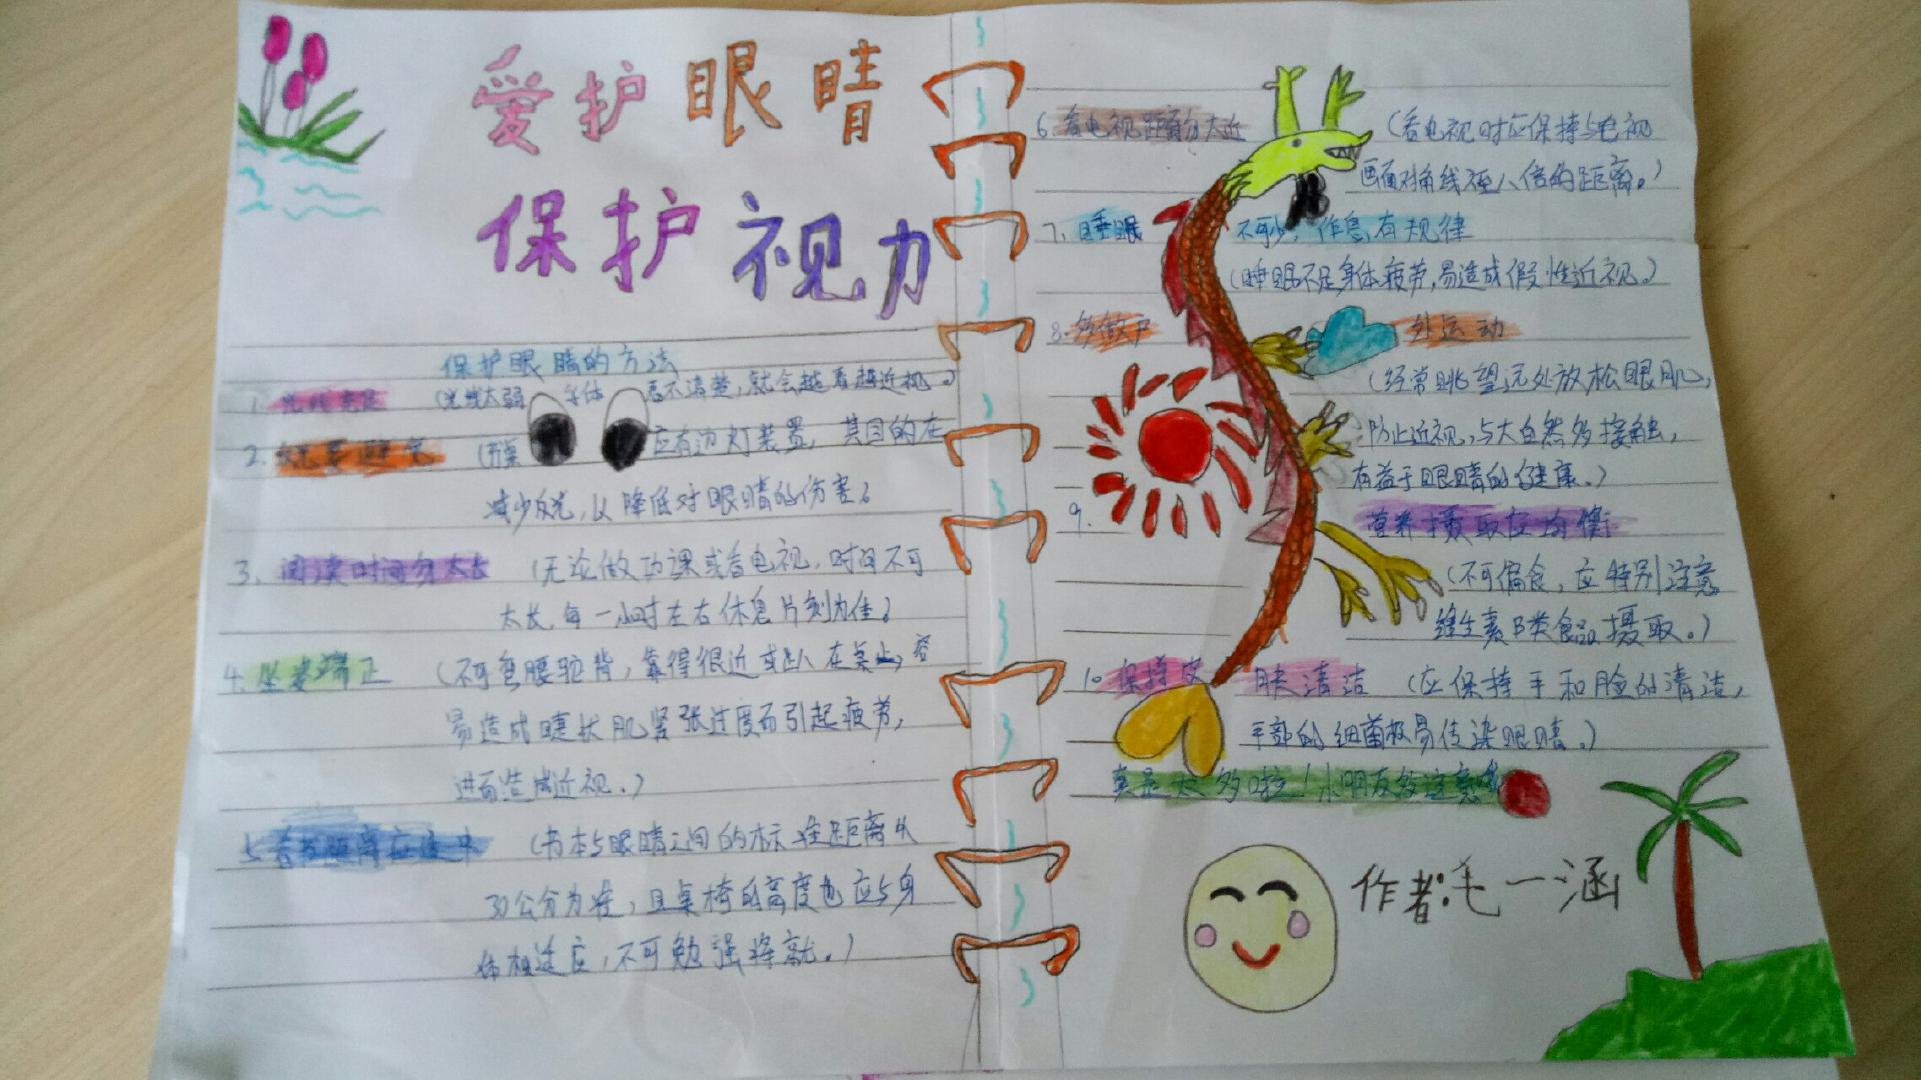 爱护眼睛
保护视力
保护眼睛的方法
1. 光线充足 (光线太弱 字体 看不清楚,就会越看越近视。)
2. (书桌 应有边灯装置,其目的在
减少反光,以降低对眼睛的伤害。
3. 阅读时间勿太长 (无论做功课或看电视,时间不可
太长,每一小时左右休息片刻为佳。
4. 坐姿端正 (不可弯腰驼背,靠得很近或趴在桌上,容
易造成睫状肌紧张过度而引起疲劳,
进而造成近视。)
5. 看书距离应适中 (书本与眼睛之间的标准距离从
30公分为准,且桌椅的高度也应与身
体相适应,不可勉强将就。)
6. 看电视距离勿太近 (看电视时应保持与电视
画面对角线 八倍的距离。)
7. 睡眠 不可少,作息有规律
(睡眠不足身体疲劳,易造成假性近视。)
8. 多做户 外运动
(经常眺望远处放松眼肌,
防止近视,与大自然多接触,
有益于眼睛的健康。)
9. 营养摄取应均衡
(不可偏食,应特别注意
维生素B类食品摄取。)
10 保持皮 肤清洁 (应保持手和脸的清洁,
手部的细菌极易传染眼睛。)
真是太多啦!小朋友多注意哦
作者:毛一涵